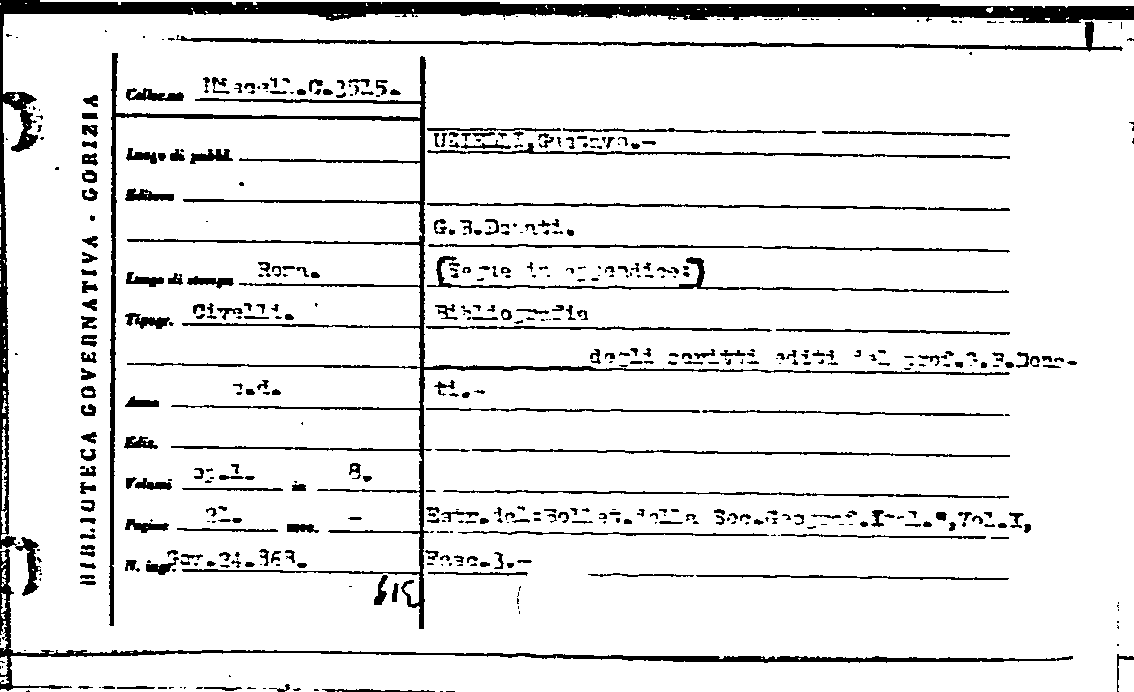 BIBLIOTECA GOVERNATIVA - GORIZIA
Colloc.ne Miscell.C.3515.
Luogo di pubbl.
UZIELLI,Gustavo.-
Editore
G.B.Donati.
Luogo di stampa Roma.
(Segue in appendice:)
Tipogr. Civelli.
Bibliografia
degli scritti editi del prof.G.B.Dona-
Anno s.d.
ti.-
Ediz.
Volumi op.1. in 8.
Pagine 21. mes. -
Estr.dal:Bollet.della Soc.Geograf.Ital.",Vol.X,
N. ingr. Gov.24.868.
Fasc.3.-